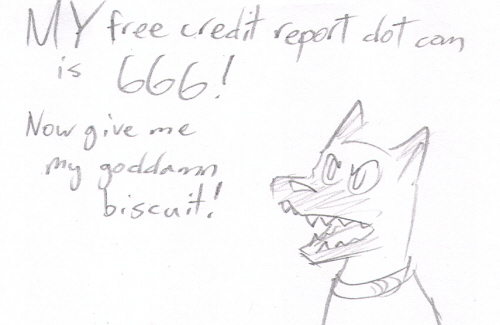 MY free credit report dot com
is 666!
Now give me
my goddamn
biscuit!